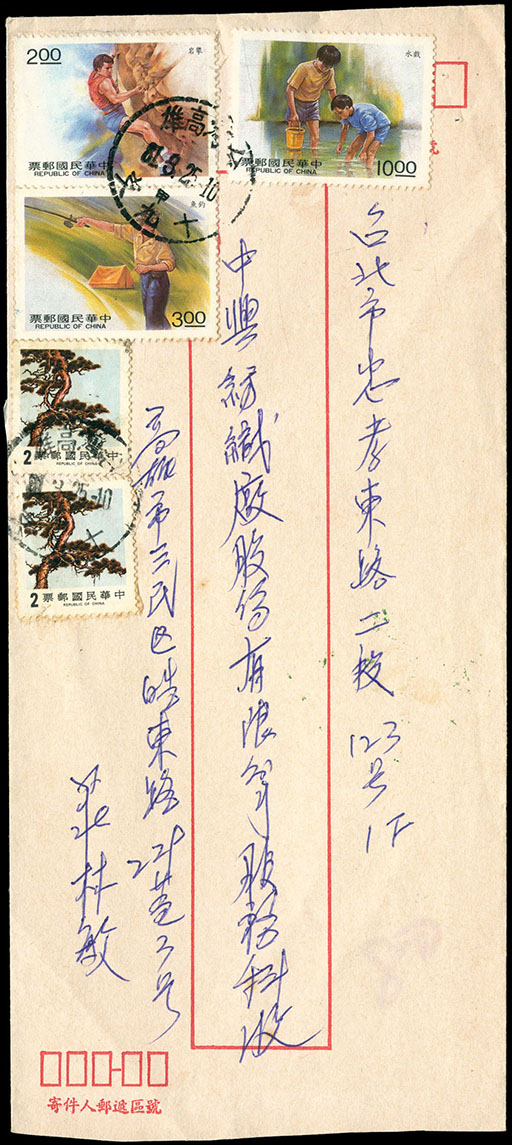 2.00
岩攀
票郵國民華中
REPUBLIC OF CHINA
水戲
票郵國民華中
REPUBLIC OF CHINA
10.00
雄高
81.8.25.10
甲
九十
魚釣
票郵國民華中
REPUBLIC OF CHINA
3.00
2
票郵國民華中
REPUBLIC OF CHINA
雄高
25.10
十
2
票郵國民華中
REPUBLIC OF CHINA
號
台北市忠孝東路二段123号1F
中興紡織廠股份有限公司股務科收
高雄市三民區皓東路
号
林敏
寄件人郵遞區號